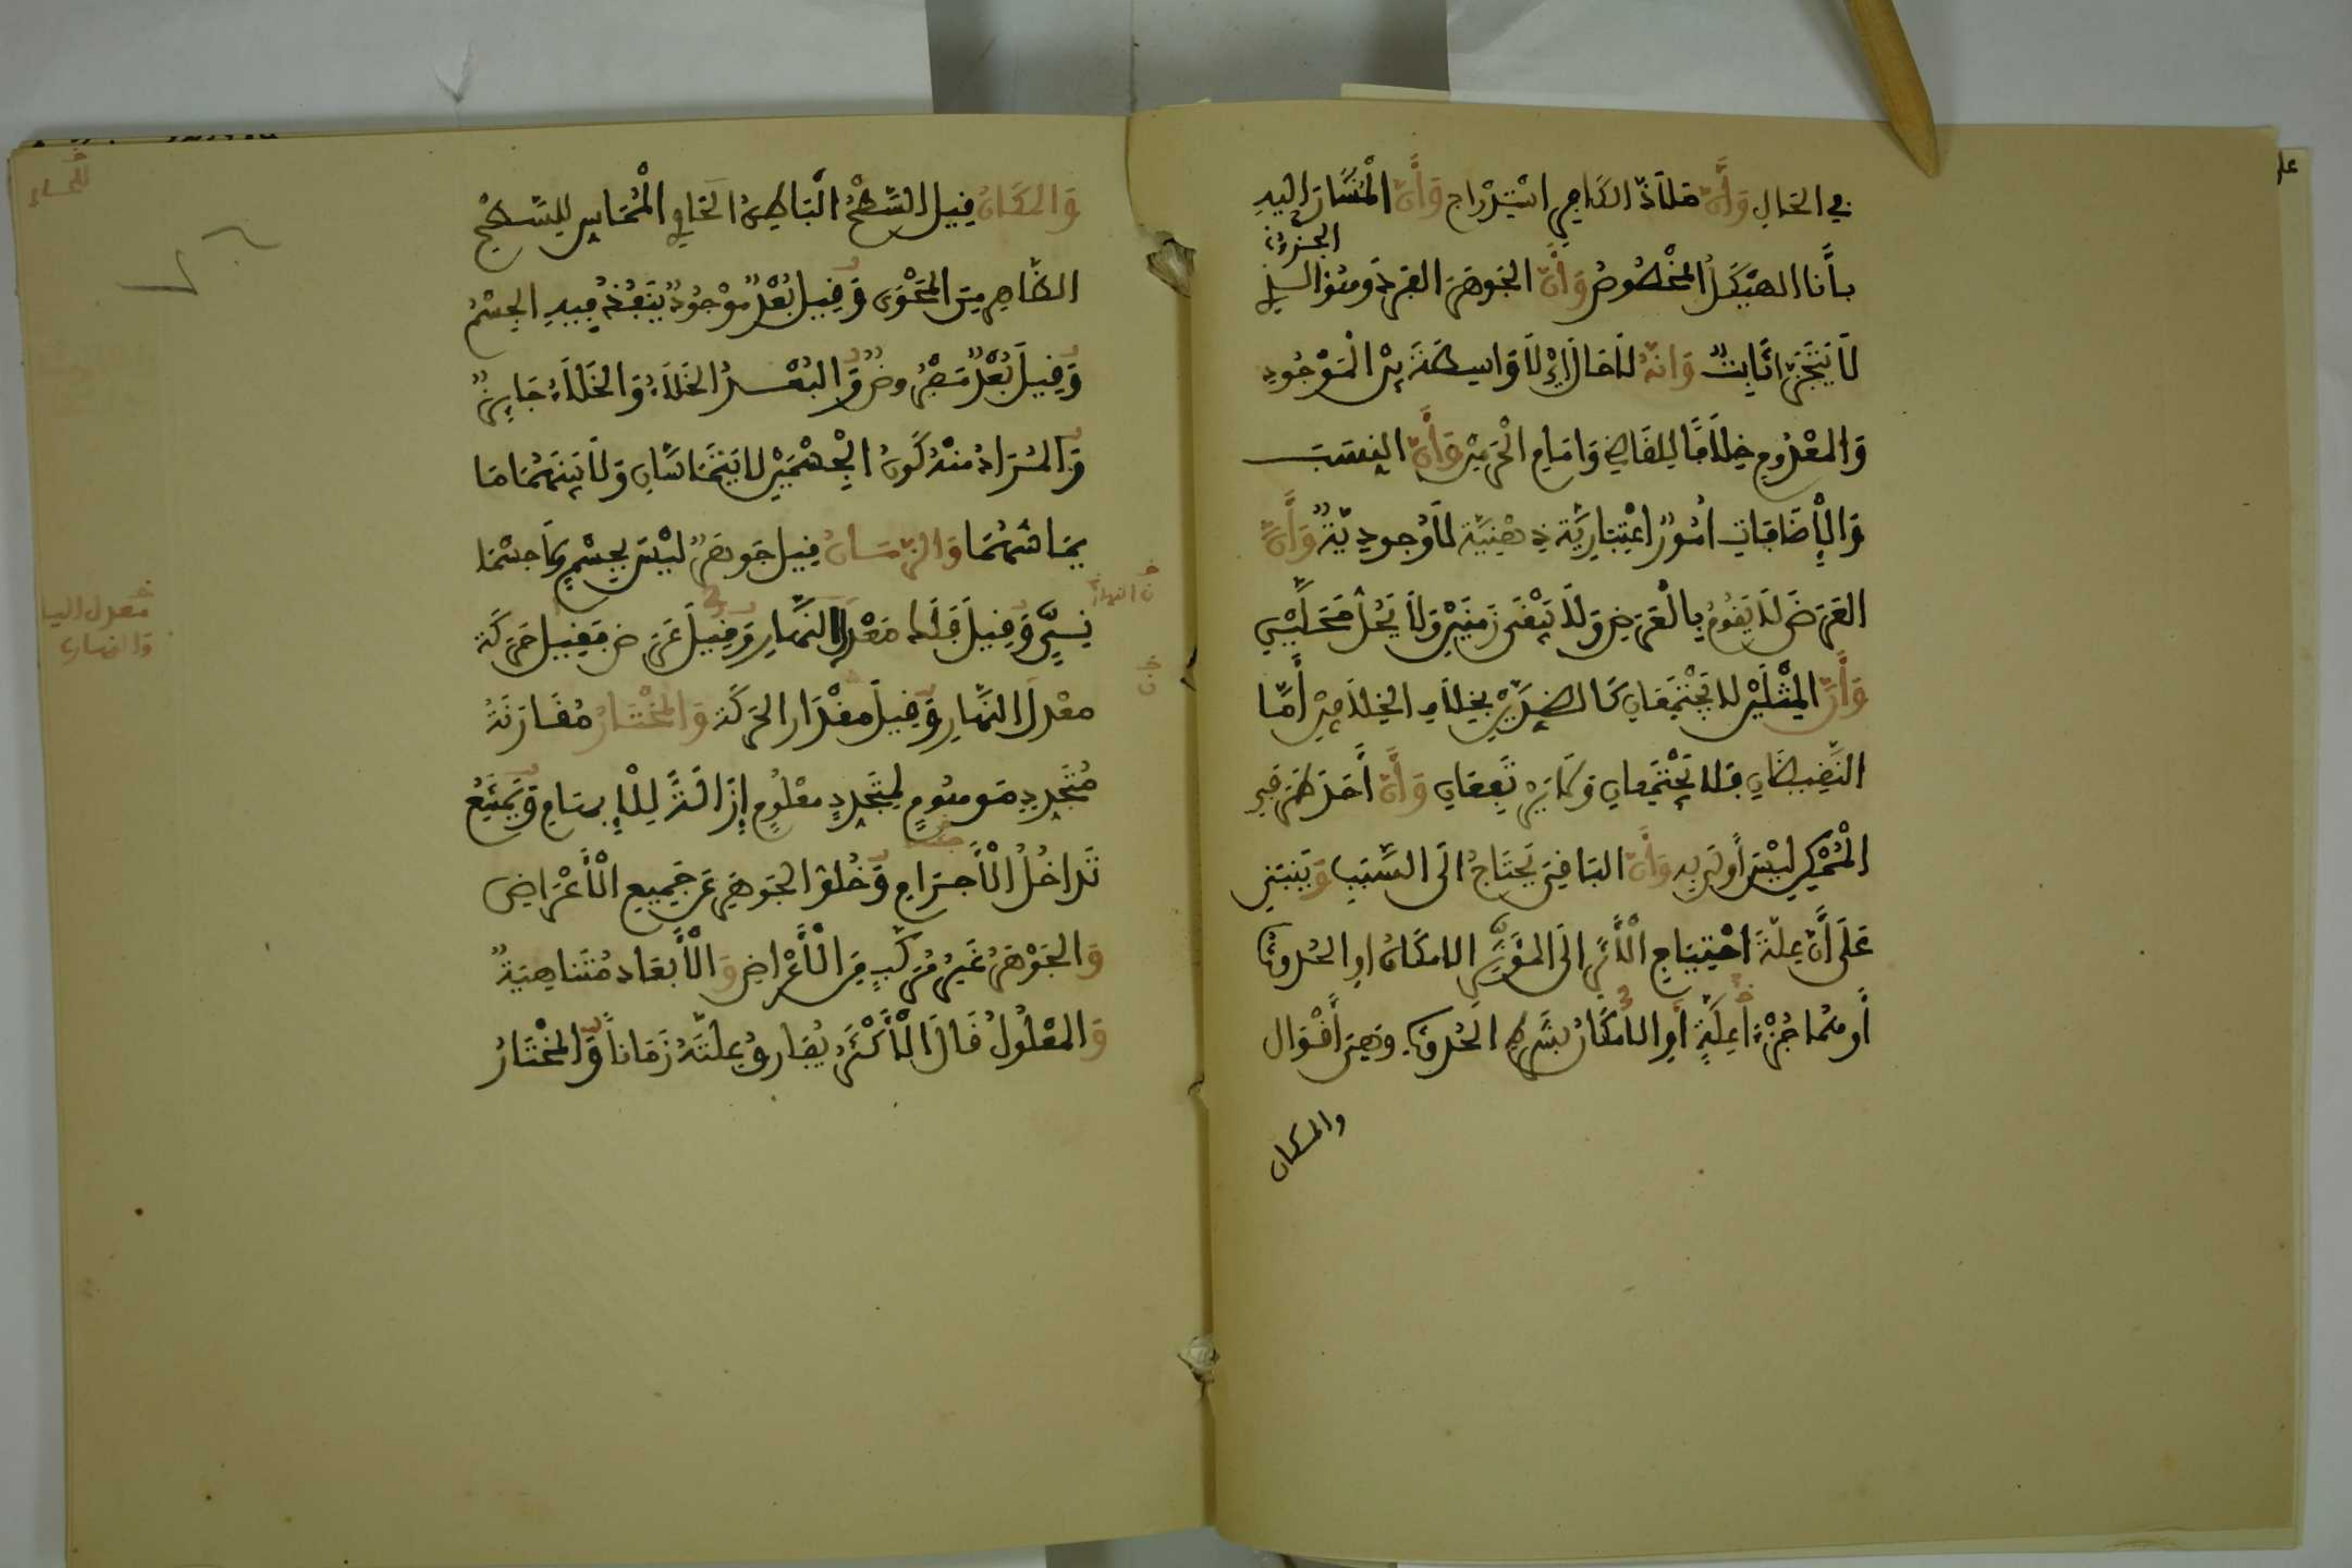 في الحَالِ وَأَنَّ مَلَاذَّ الكَافِرِ اسْتِدْرَاج وَأَنَّ الْمُشَارَ إلَيْهِ
الجزء
بأَنَا الهَيْكَلُ المَخْصُوصُ وَأَنَّ الجَوهَرَ الفَرْدَ وهُوَ الذي
لَا يَتَجَزَّأ ثَابِتٌ وَانَّهُ لَا حَالَ أيْ لَا وَاسِطَةَ بَيْنَ الْمَوْجُودِ
وَالمَعْدُومِ خِلَافًا لِلقَاضِي وَامَامِ الْحَرَمَيْنِ وَأَنَّ النِسَبَ
وَالْإضَافَاتِ امُورٌ اعْتِبَارِيَّة ذِهْنِيَّة لَا وُجودِيَّةٌ وَأَنَّ
العَرَضَ لَا يَقُومُ بِالْعَرَضِ وَلَا يَبْقَى زَمَنَيْنِ وَلَا يَحُلُّ مَحَلَّيْنِ
وَأَنَّ المِثْلَيْنِ لا يَجْتَمِعَانِ كَالضِدَّيْنِ بِخِلَافِ الخِلَافَيْنِ أَمَّا
النَّقِيضَانِ فَلا يَجْتَمِعانِ وَلَا يَرْتَفِعَانِ وَأَنَّ أَحَدَ طَرَفَي
الْمُمْكِنِ لَيْسَ أَولَى بِهِ وَأَنَّ البَاقِيَ يَحْتَاجُ الَى السَّبَبِ وَيَنْبَنِي
عَلَى أَنَّ عِلَّةَ احْتِيَاجِ الْأَثَرِ الَى المُؤَثِّرِ الامكَانُ اوِ الحُدُوثُ
أَو هُمَا جُزْءَا عِلَّةٍ أَوِ الامْكَانُ بِشَرْطِ الحُدُوثِ وَهِيَ أَقْوَال
والمكان
وَالمَكَانُ قِيلَ السَّطْحُ الْبَاطِنُ الحَاوِي الْمُمَاسُّ لِلسَّطْحِ
الظَّاهِرِ مِنَ المَحْوِي وَقِيلَ بُعْدٌ مَوْجُودٌ يَنْفُذُ فِيهِ الجِسْمُ
وَقِيلَ بُعْدٌ مَفْرُوضٌ وَالبُعْدُ الخَلَاءُ وَالخَلَاءُ جَايِزٌ
وَالمُرَادُ مِنْهُ كَوْنُ الْجِسْمَيْنِ لا يَتَمَاسَّانِ وَلَا بَيْنَهُمَا مَا
يُمَاسُّهُمَا وَالزَّمَانُ قِيلَ جَوهَرٌ لَيْسَ بِجِسْمٍ وَلَا جِسْمَا
نِيٍّ وَقِيلَ فَلَكُ مَعْدِلِ النَّهَارِ وَقِيلَ عَرَض فَقِيلَ حَرَكَة
معْدلِ النَّهَارِ وَقِيلَ مِقْدَار الحَرَكَة وَالمُخْتَارُ مُقَارَنَةُ
مُتَجَدِدٍ مَوهُومٍ لِمُتَجَدِدٍ معْلُومٍ إِزَالَةً لِلْإِبهَامِ وَيَمْتَنِعُ
تَدَاخُلُ الْأَجْرَامِ وَخُلُوُّ الجَوهَرِ عَن جَمِيعِ الْأَعْرَاضِ
وَالجَوْهَرُ غَيْرُ مُرَكَّبٍ مِنَ الْأَعْرَاضِ وَالْأَبْعَاد مُتَنَاهِيَةٌ
وَالمَعْلُولُ قَالَ الْأَكْثَرُ يُقَارِنُ عِلَّتَهُ زَمَاناً وَالمُخْتَارُ
معدل اليا